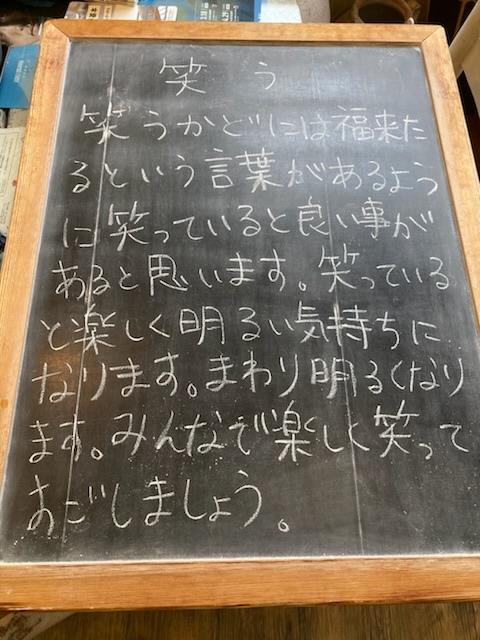 笑う
笑うかどには福来た
るという言葉があるよう
に笑っていると良い事が
あると思います。笑っている
と楽しく明るい気持ちに
なります。まわり明るくなり
ます。みんなで楽しく笑って
すごしましょう。